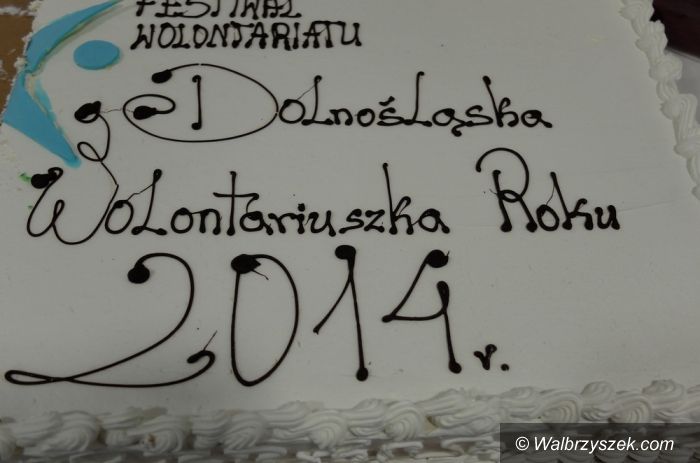 FESTIWAL
WOLONTARIATU
Dolnośląska
Wolontariuszka Roku
2014r.
© Walbrzyszek.com